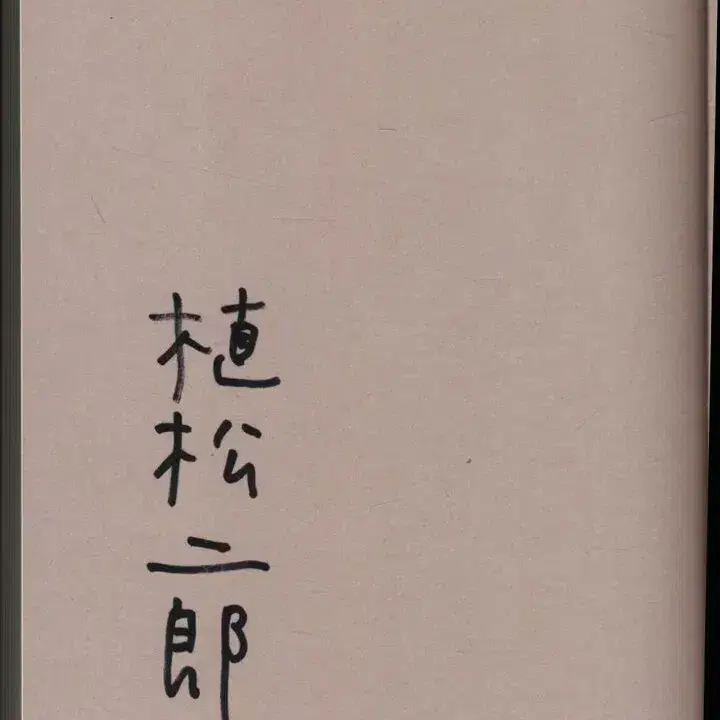 植松二郎